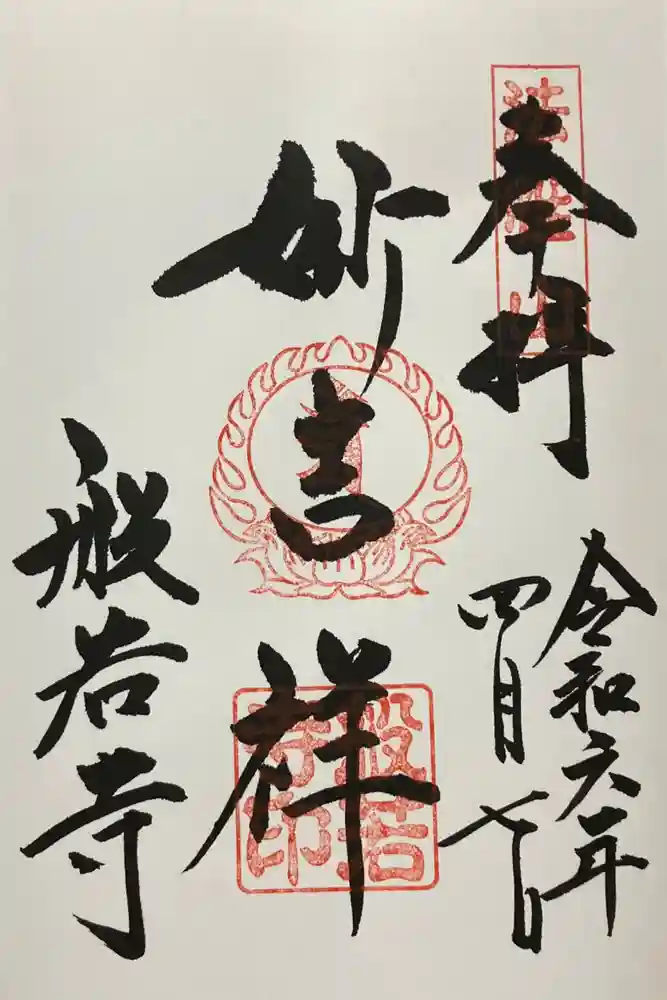 奉拝
令和六年
四月七日
妙吉祥
般若寺
般若
寺印